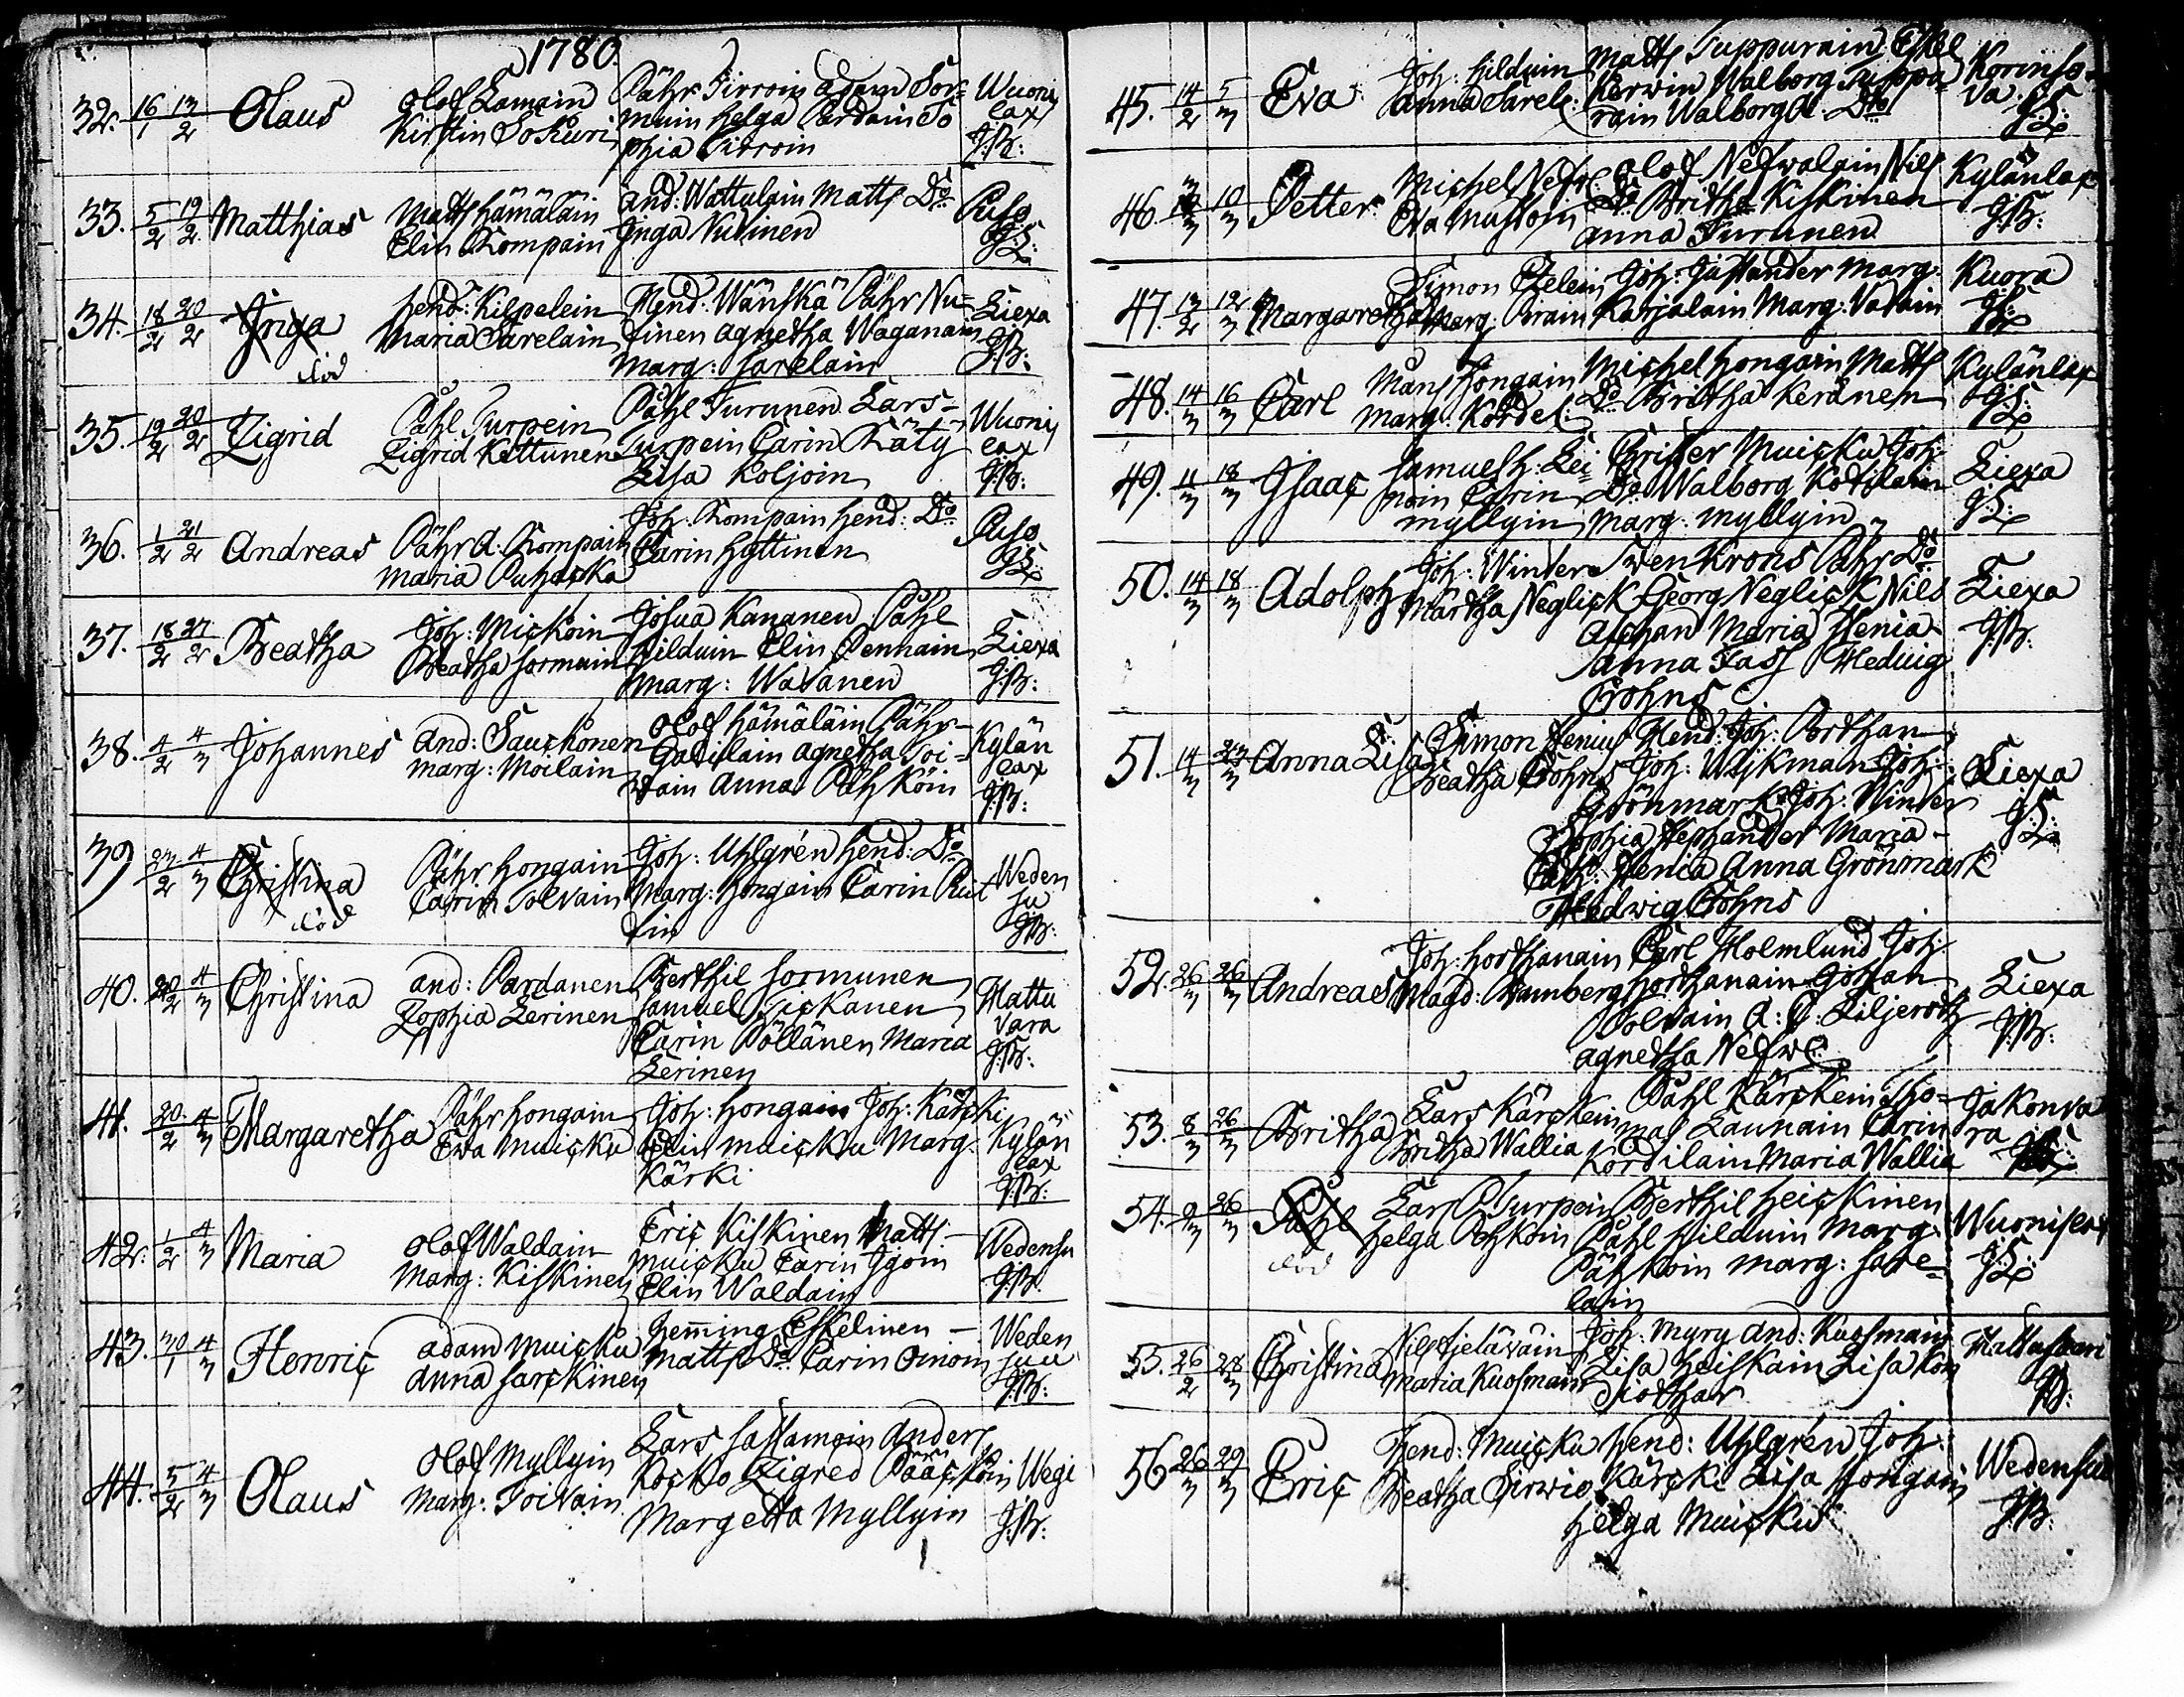 1780.
32. 16/1 13/2 Olaus Olof Lamain Kirstin Sokuri Påhr Tirroin Adam Sormuin Helga Pardain Sophia Tirroin Wuonislax J.B.
33. 5/2 19/2 Matthias Matts Hämäläin Elin Kompain And: Wattulain Matts Do Inga Nutinen Puso
34. 18/2 20/2 Inga död Hend: Kilpelein Maria Sarelain Hend: Wänskä Påhr Nutinen Agnetha Waganain Marg: Sarelain Liexa J.B:
35. 19/2 20/2 Zigrid Påhl Turpein Zigrid Kettunen Påhl Turunen Lars Turpein Carin Räty Lisa Koljoin Wuonislax J.B:
36. 1/2 21/2 Andreas Påhr A. Kompain Maria Puhacka Joh: Kompain Hend: Do Carin Hyttinen Puso
37. 18/2 27/2 Beatha Joh: Mickoin Beatha Sormuin Josua Kananen Påhl Hilduin Elin Pennain Marg: Watanen Liexa J.B:
38. 4/2 4/3 Johannes And: Sauckonen Marg: Moilain Olof Hämäläin Påhr Gatilain Agnetha Toivain Anna Påhkoin Kylänlax J.B:
39 23/2 4/3 Christina död Påhr Hongain Carin Tolvain Joh: Uhlgrén Hend: Do Marg: Hongain Carin Ruittin Wedensu J.B:
40. 20/2 4/3 Christina And: Pardanen Zophia Lerinen Berthil Sormunen Samuel Tickanen Carin Pöllänen Maria Lerinen Hattuvara J.B:
41. 20/2 4/3 Margaretha Påhr Hongain Eva Muicku Joh: Hongain Joh: Kärcki Elin Muicku Marg: Kärki Kylänlax J.B:
42. 1/2 4/3 Maria Olof Waldain Marg: Kiskinen Eric Kiskinen Matts Muicku Carin Igoin Elin Waldain Wedensu J.B.
43. 30/1 4/3 Henric Adam Muicku Anna Sarckinen Heming Eskelinen Matts Do Carin Oinoin Wedensuu J.B:
44. 5/2 4/3 Olaus Olof Myllyin Marg: Toivain Lars Sassamoin Anders Kocko Zigred Pääcköin Margetta Myllyin Wegi J.B:
45. 14/2 5/3 Eva Joh: Hilduin Anna Sarel: Matts Tuppurain Eskel Kerwin Walborg Tuppurain Walborg A. Do Korinsova
46. 10/3 Petter Michel Nefv: Eva Mustoin Olof Nefwalain Nils Do Britha Kiskinen Anna Turunen Kylänlax J.B:
47. 13/2 12/3 Margaretha Simon Ezelein Marg: Pirain Joh: Justander Marg: Karjalain Marg: Vatain Kuora
48. 14/3 16/3 Carl Måns Hongain Marg: Kordel: Michel Hongain Matts Do Britha Keränen Kylänlax
49. 11/3 18/3 Isaac Samuel H: Leinoin Carin Myllyin Christer Muicku Joh: Do Walborg Kotilain Marg: Myllyin Liexa
50. 14/3 18/3 Adolph Joh: Winter Märtha Neglick Swen Krons Påhr Do Georg Neglick Nils Aschan Maria Henia Anna Fass Hedvig Crohns Liexa J.B.
51. 14/3 23/3 Anna Lisa Simon Henius Beatha Crohns Hend: Joh: Porthan Joh: Wijkman Joh: Grönmark Joh: Winter Sophia Hephander Maria Cath: Henia Anna Grönmark Hedwig Crohns Liexa
52. 26/3 26/3 Andreas Joh: Horthanain Magd: Bamberg Carl Holmlund Joh: Horthanain Göstan Tolvain A: C: Liljeroth Agnetha Nefw: Liexa J.B.
53. 8/3 26/3 Britha Lars Kärckein Britha Wallia Påhl Kärckein Thomas Launain Carin Kordilain Maria Wallia Jakonvara
54. 9/3 26/3 Påhl död Lars P Turpein Helga Pehkoin Berthil Heickinen Påhl Hilduin Marg: Päykoin Marg: Sarelain Wuonislax
55. 26/2 28/3 Christina Nils Hjelävain Maria Kuosmain Joh: Myry And: Kuosmain Lisa Heiskain Lisa Kondiothar Hattuvara
56 26/3 29/3 Eric Hend: Muicku Beatha Hirwio Hend: Uhlgrén Joh: Kärcki Lisa Hongain Helga Muicku Wedensuu J.B.